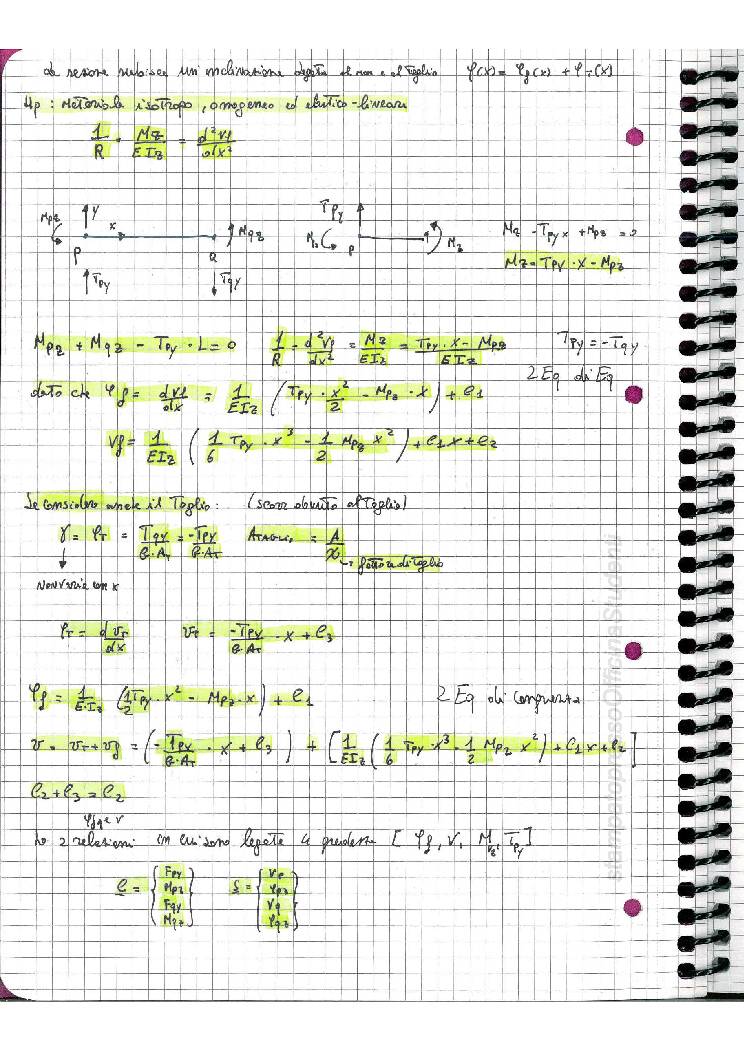 La sezione subisce un'inclinazione legata al mom e al taglio φ(x) = φf(x) + φT(x)
Hp: Materiale isotropo, omogeneo ed elastico-lineare
1/R = Mz/EIz = d²vf/dx²
Mpz y x Mqz
P Q
Tpy Tqy
Tpy
Mz P Mz
Mz - Tpy x + Mpz = 0
Mz = Tpy · x - Mpz
Mpz + Mqz - Tpy · L = 0 1/R = d²vf/dx² = Mz/EIz = Tpy · x - Mpz/EIz Tpy = -Tqy
2 Eq di Eq
dato che φf = dvf/dx = 1/EIz (Tpy · x²/2 - Mpz · x) + C1
vf = 1/EIz (1/6 Tpy · x³ - 1/2 Mpz x²) + C1x + C2
Se considero anche il Taglio: (scorr dovuto al Taglio)
γ = φT = Tqy/G·AT = -Tpy/G·AT ATAGLIO = A/χ → fattore di Taglio
NON varia con x
φT = dvT/dx vT = -Tpy/G·AT · x + C3
φf = 1/E·Iz (1/2 Tpy · x² - Mpz · x) + C1 2 Eq di Congruenza
v = vT + vf = (-Tpy/G·AT · x + C3) + [1/EIz (1/6 Tpy · x³ - 1/2 Mpz x²) + C1x + C2]
C2 + C3 = C2
φf e v
Le 2 relazioni in cui sono legate 4 grandezze [φf, V, Mpz, Tpy]
C = {Fpy Mpz Fqy Mqz} S = {Vp φpz Vq φqz}
stampatopressoOfficinaStudenti